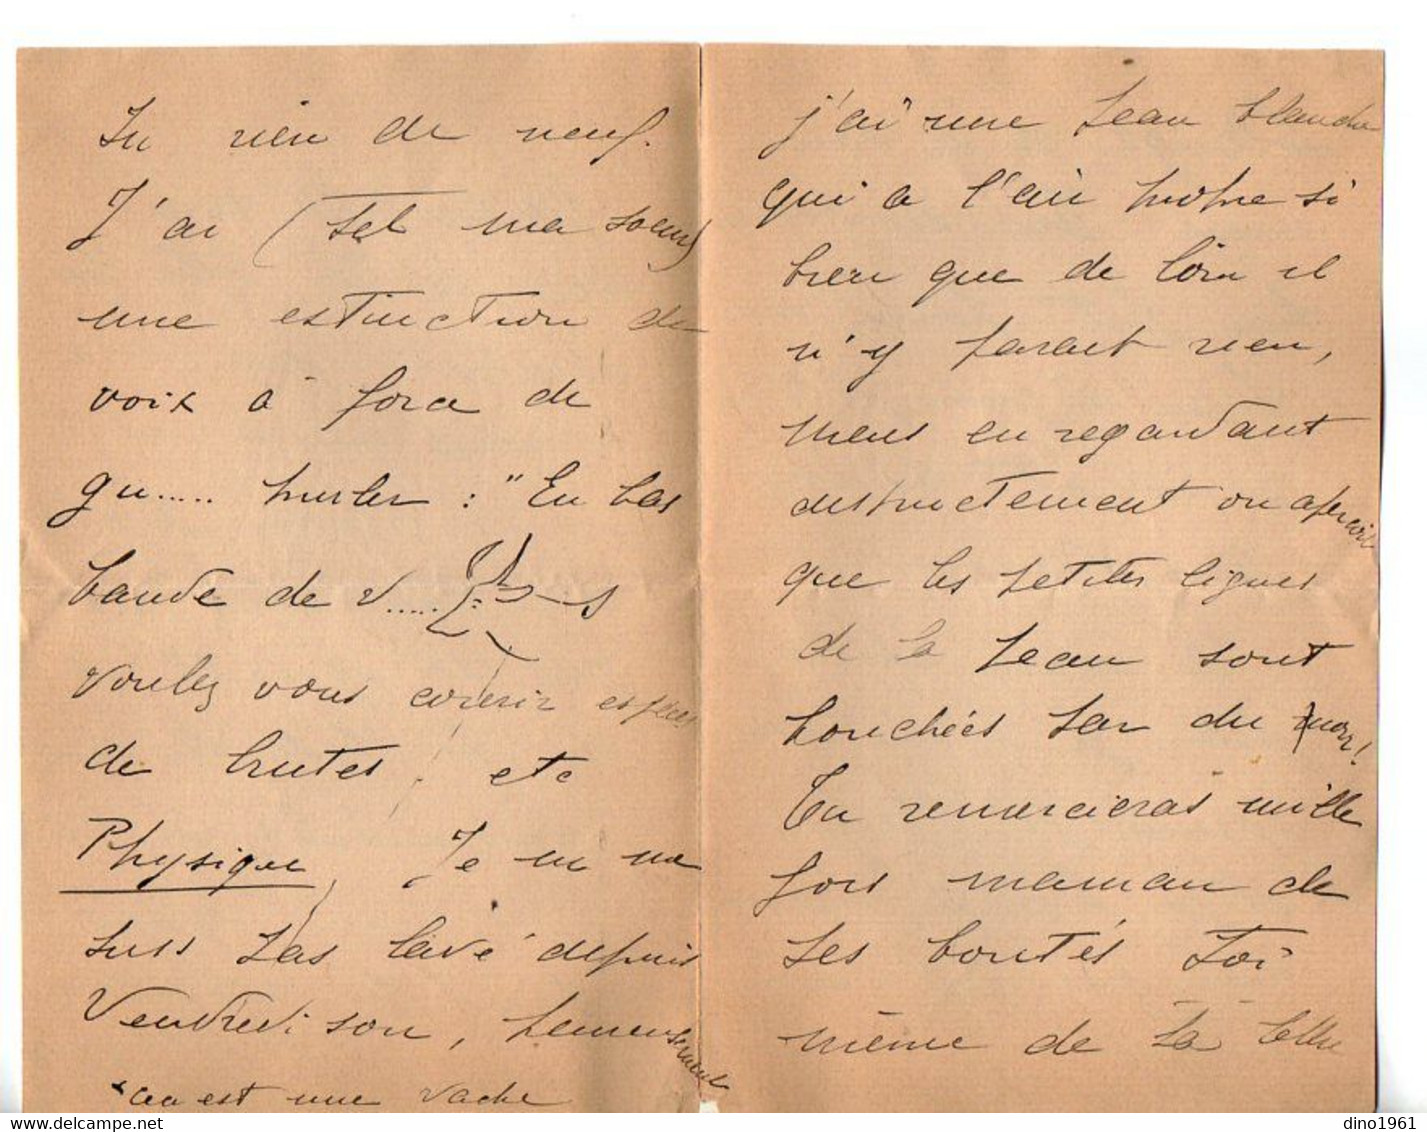 Su rien de neuf.
J'ai (tel ma soeur)
une extinction de
voix à force de
gu..... hurler : "En bas
bande de v.....s
voulez vous courir espèces
de brutes, etc
Physique, Je ne me
suis pas lavé depuis
Vendredi soir, heureusement
*ceci est une vache
j'ai une peau blanche
qui a l'air propre si
bien que de loin il
n'y parait rien,
mais en regardant
distinctement on aperçoit
que les petites lignes
de la peau sont
bouchées par du noir!
Tu remercieras mille
fois maman de
ses bontés Toi
même de ta lettre
dino1961